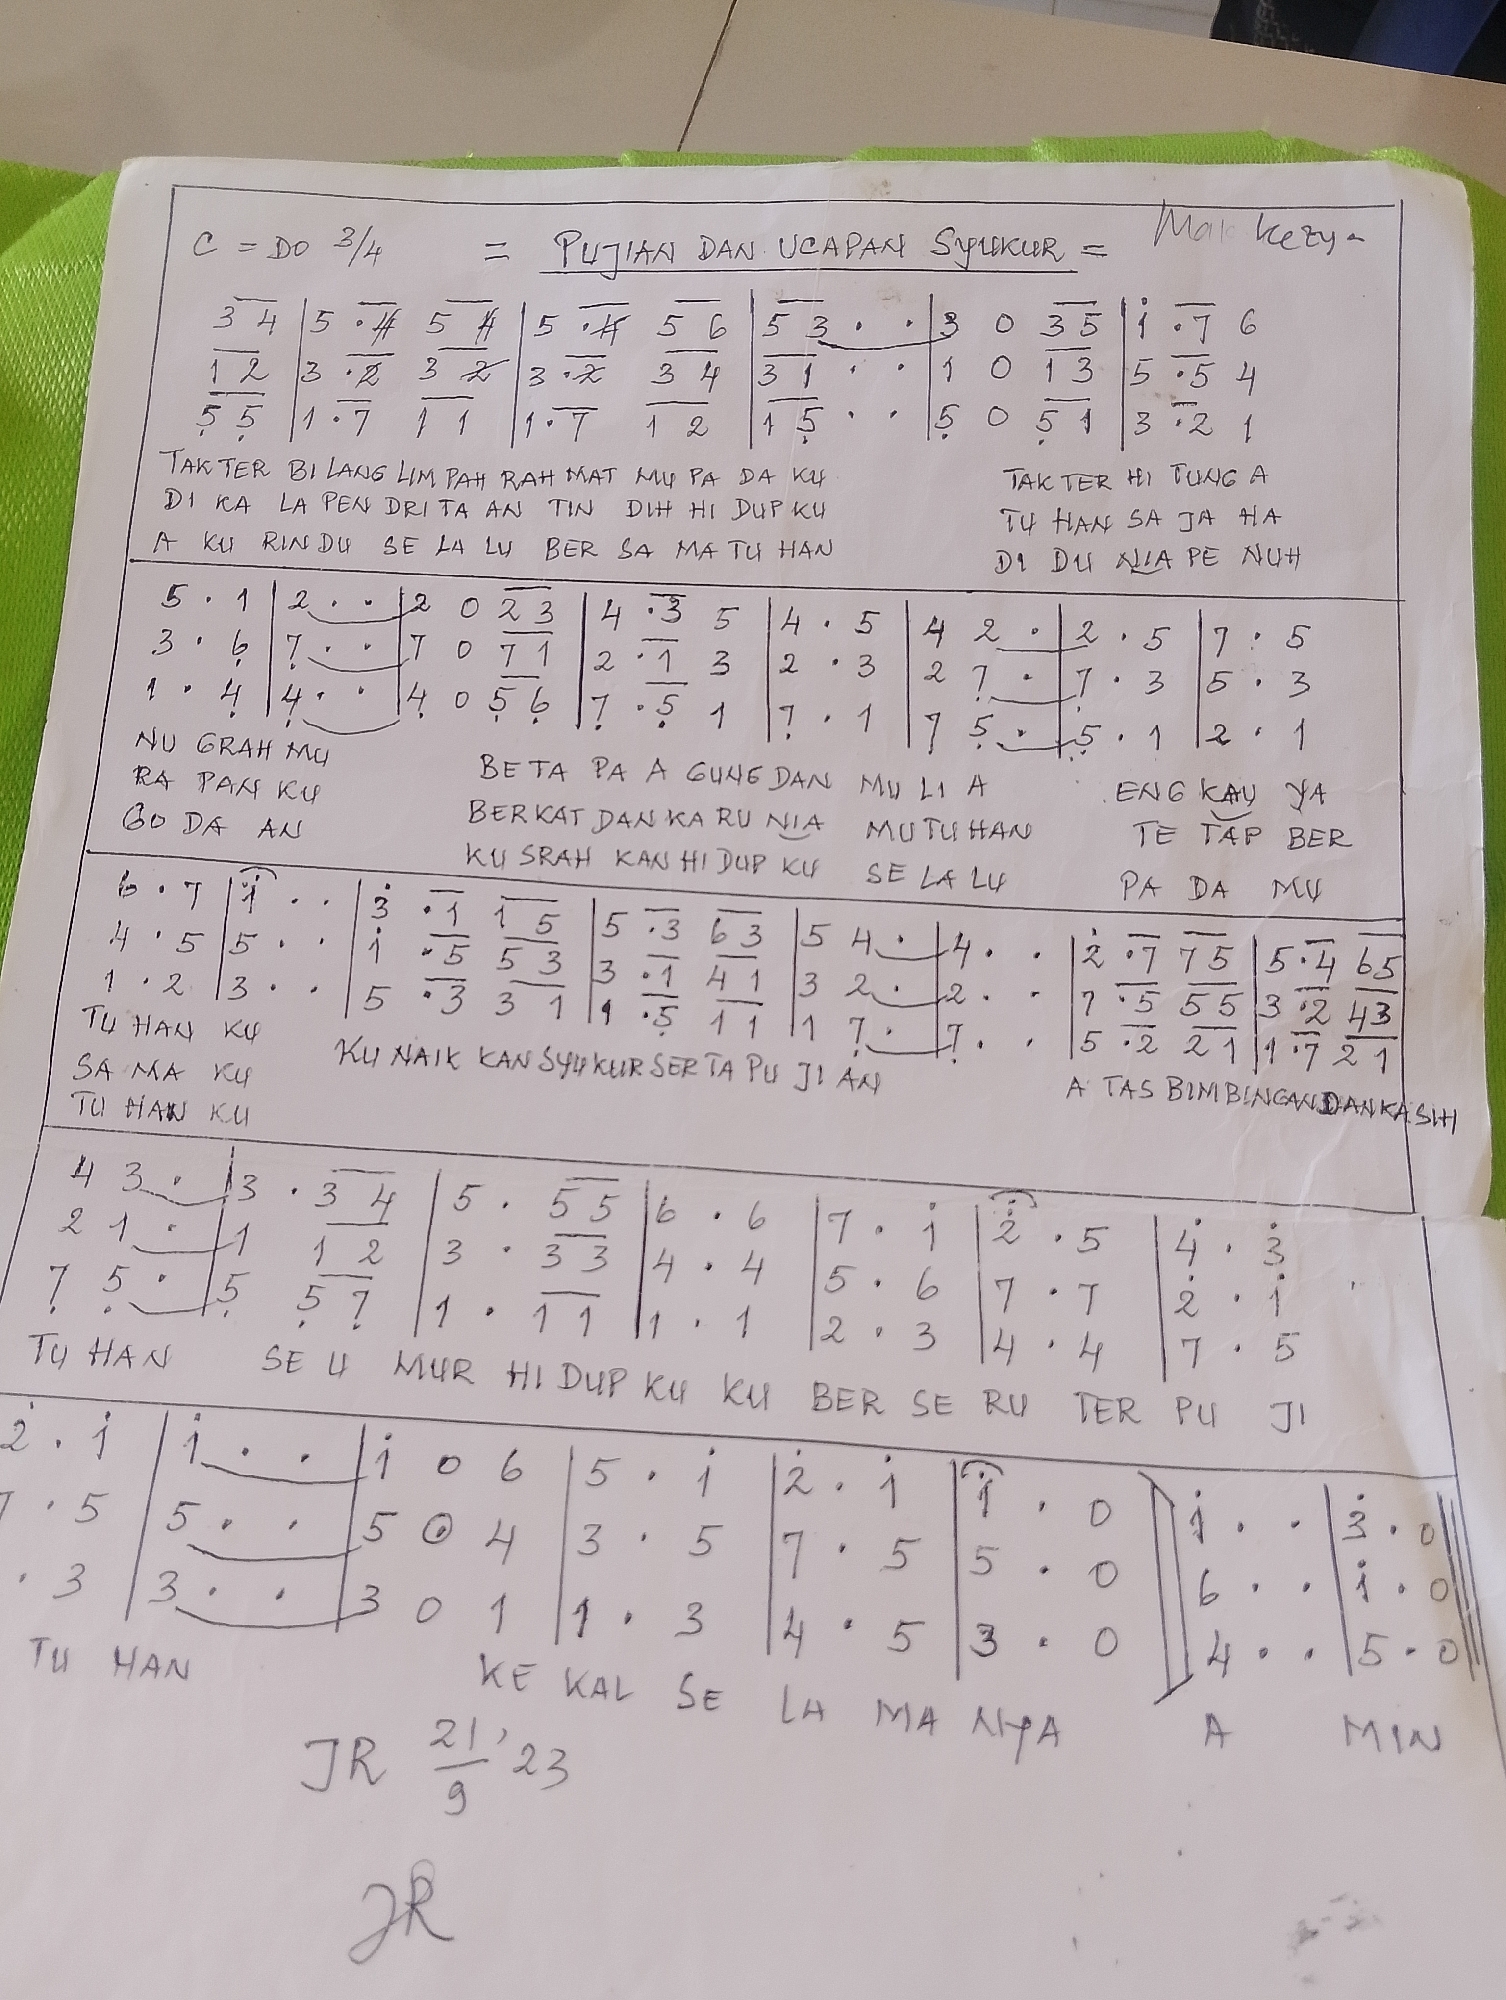 C = DO 3/4 = PUJIAN DAN UCAPAN SYUKUR =
3 4 | 5 . 4̸ 5 4̸ | 5 . 4̸ 5 6 | 5 3 . . | 3 0 3 5 | 1̇ . 7 6
1 2 | 3 . 2̸ 3 2̸ | 3 . 2̸ 3 4 | 3 1 . . | 1 0 1 3 | 5 . 5 4
5̣ 5̣ | 1 . 7 1 1 | 1 . 7 1 2 | 1 5̣ . . | 5̣ 0 5̣ 1 | 3 . 2 1
TAK TER BI LANG LIM PAH RAH MAT MU PA DA KU TAK TER HI TUNG A
DI KA LA PEN DRI TA AN TIN DIH HI DUP KU TU HAN SA JA HA
A KU RIN DU SE LA LU BER SA MA TU HAN DI DU NIA PE NUH
5 . 1 | 2 . . | 2 0 2 3 | 4 . 3 5 | 4 . 5 | 4 2 . | 2 . 5 | 7 . 5
3 . 6̣ | 7̣ . . | 7 0 7 1 | 2 . 1 3 | 2 . 3 | 2 7̣ . | 7̣ . 3 | 5 . 3
1 . 4̣ | 4̣ . . | 4̣ 0 5̣ 6̣ | 7̣ . 5̣ 1 | 7̣ . 1 | 7 5̣ . | 5̣ . 1 | 2 . 1
NU GRAH MU BE TA PA A GUNG DAN MU LI A ENG KAU YA
RA PAN KU BERKAT DAN KA RU NIA MU TU HAN TE TAP BER
GO DA AN KU SRAH KAN HI DUP KU SE LA LU PA DA MU
6 . 7 | 1̇ . . | 3̇ . 1 1 5 | 5 . 3 6 3 | 5 4 . | 4 . . | 2̇ . 7 7 5 | 5 . 4 6 5
4 . 5 | 5 . . | 1̇ . 5 5 3 | 3 . 1 4 1 | 3 2 . | 2 . . | 7 . 5 5 5 | 3 . 2 4 3
1 . 2 | 3 . . | 5 . 3 3 1 | 1 . 5̣ 1 1 | 1 7̣ . | 7̣ . . | 5 . 2 2 1 | 1 . 7 2 1
TU HAN KU KU NAIK KAN SYUKUR SER TA PU JI AN A TAS BIMBINGAN DAN KASIH
SA MA KU
TU HAN KU
4 3 . | 3 . 3 4 | 5 . 5 5 | 6 . 6 | 7 . 1̇ | 2̇ . 5 | 4̇ . 3̇
2 1 . | 1 1 2 | 3 . 3 3 | 4 . 4 | 5 . 6 | 7 . 7 | 2̇ . 1̇
7̣ 5̣ . | 5̣ 5̣ 7̣ | 1 . 1 1 | 1 . 1 | 2 . 3 | 4 . 4 | 7 . 5
TU HAN SE U MUR HI DUP KU KU BER SE RU TER PU JI
2̇ . 1̇ | 1̇ . . | 1̇ 0 6 | 5 . 1̇ | 2̇ . 1̇ | 1̇ . 0 || 1̇ . . | 3̇ . 0
7 . 5 | 5 . . | 5 0 4 | 3 . 5 | 7 . 5 | 5 . 0 || 6 . . | 1̇ . 0
. 3 | 3 . . | 3 0 1 | 1 . 3 | 4 . 5 | 3 . 0 || 4 . . | 5 . 0
TU HAN KE KAL SE LA MA NYA A MIN
JR 21/9 '23
JR